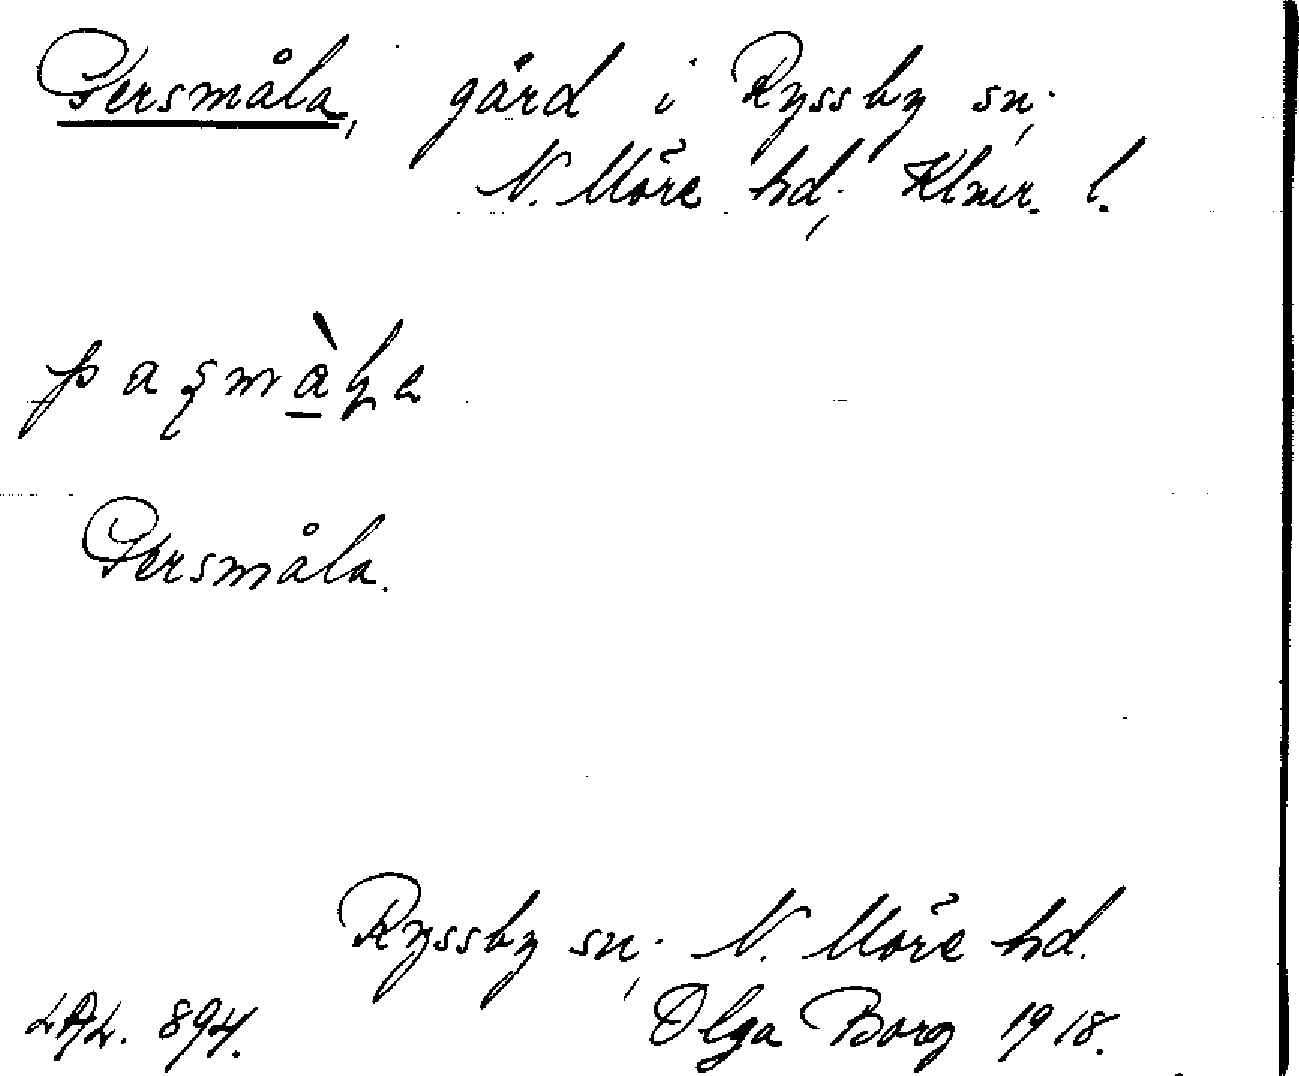 Persmåla, gård i Ryssby sn;
N. Möre hd; Klmr. l.
paʂmàɽa
Persmåla.
Ryssby sn; N. Möre hd.
LAL. 894. Olga Borg 1918.